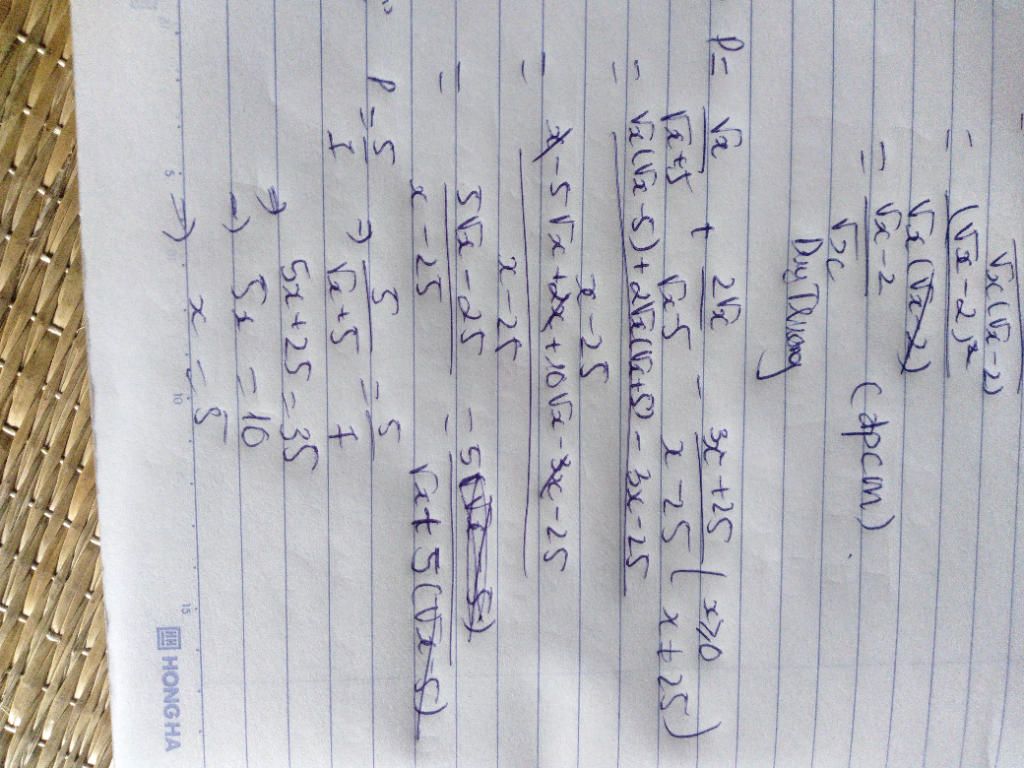 √x(√x-2)
= (√x-2)²
√x(√x-2)
= √x-2 / √x (đpcm)
Duy Dương
P = √x / √x+5 + 2√x / √x-5 - 3x+25 / x-25 ( x≥0 x+25 )
= √x(√x-5)+2√x(√x+5)-3x-25 / x-25
= x-5√x+2x+10√x-3x-25 / x-25
= 5√x-25 / x-25 = 5(√x-5) / √x+5(√x-5)
P = 5/1 => 5 / √x+5 = 5/1
=> 5x+25=35
=> 5x = 10
=> x = 5
5 10 15
HONG HA